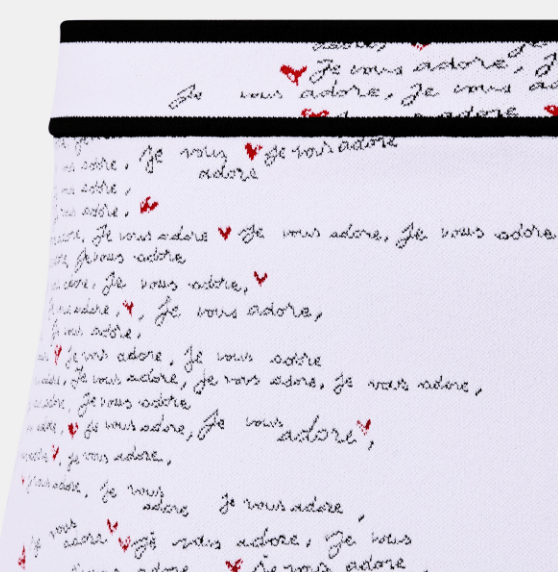 adore,
Je vous adore, J
Je vous adore, Je vous ad
adore
Je vous Je vous adore
adore, adore
adore,
adore,
adore, Je vous adore Je vous adore, Je vous adore
Je vous adore
adore, Je vous adore,
adore, Je vous adore,
vous adore,
Je vous adore, Je vous adore
Je vous adore, Je vous adore, Je vous adore,
adore, Je vous adore
Je vous adore, Je vous adore,
Je vous adore,
adore, Je vous adore Je vous adore,
Je vous adore Je vous adore, Je vous
adore Je vous adore,